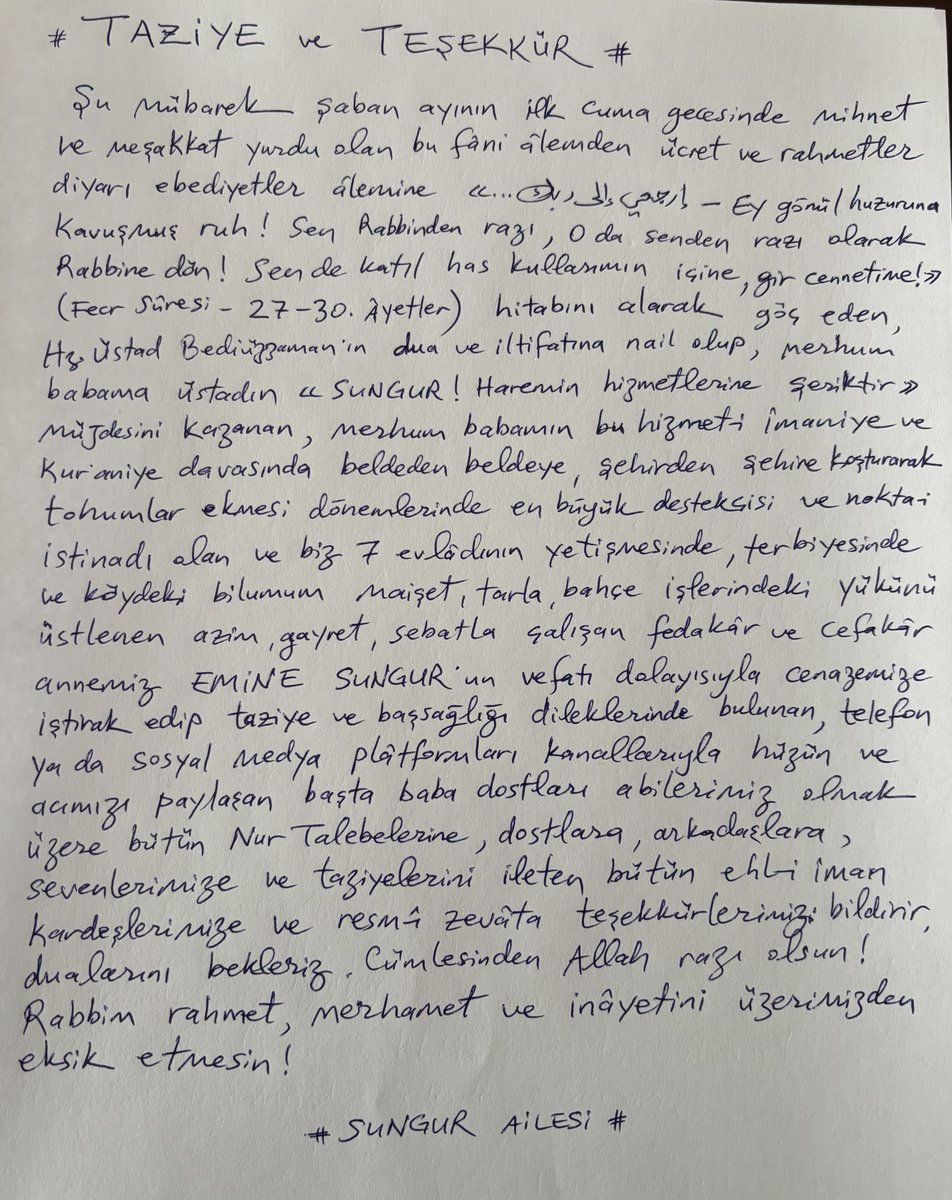 # TAZİYE ve TEŞEKKÜR #
Şu mübarek şaban ayının ilk cuma gecesinde mihnet
ve meşakkat yurdu olan bu fâni âlemden ücret ve rahmetler
diyarı ebediyetler âlemine «... ارجعي إلى ربك – Ey gönül huzuruna
kavuşmuş ruh! Sen Rabbinden razı, O da senden razı olarak
Rabbine dön! Sen de katıl has kullarımın içine, gir cennetime!»
(Fecr Sûresi - 27-30. Âyetler) hitabını alarak göç eden,
Hz. Üstad Bediüzzaman'ın dua ve iltifatına nail olup, merhum
babama üstadın « SUNGUR! Haremin hizmetlerine şeriktir»
müjdesini kazanan, merhum babamın bu hizmet-i îmaniye ve
Kur'aniye davasında beldeden beldeye, şehirden şehire koşturarak
tohumlar ekmesi dönemlerinde en büyük destekçisi ve nokta-i
istinadı olan ve biz 7 evlâdının yetişmesinde, terbiyesinde
ve köydeki bilumum maişet, tarla, bahçe işlerindeki yükünü
üstlenen azim, gayret, sebatla çalışan fedakâr ve cefakâr
annemiz EMİNE SUNGUR'un vefatı dolayısıyla cenazemize
iştirak edip taziye ve başsağlığı dileklerinde bulunan, telefon
ya da sosyal medya plâtformları kanallarıyla hüzün ve
acımızı paylaşan başta baba dostları abilerimiz olmak
üzere bütün Nur Talebelerine, dostlara, arkadaşlara,
sevenlerimize ve taziyelerini ileten bütün ehl-i îman
kardeşlerimize ve resmî zevâta teşekkürlerimizi bildirir,
dualarını bekleriz. Cümlesinden Allah razı olsun!
Rabbim rahmet, merhamet ve inâyetini üzerimizden
eksik etmesin!
# SUNGUR AİLESİ #